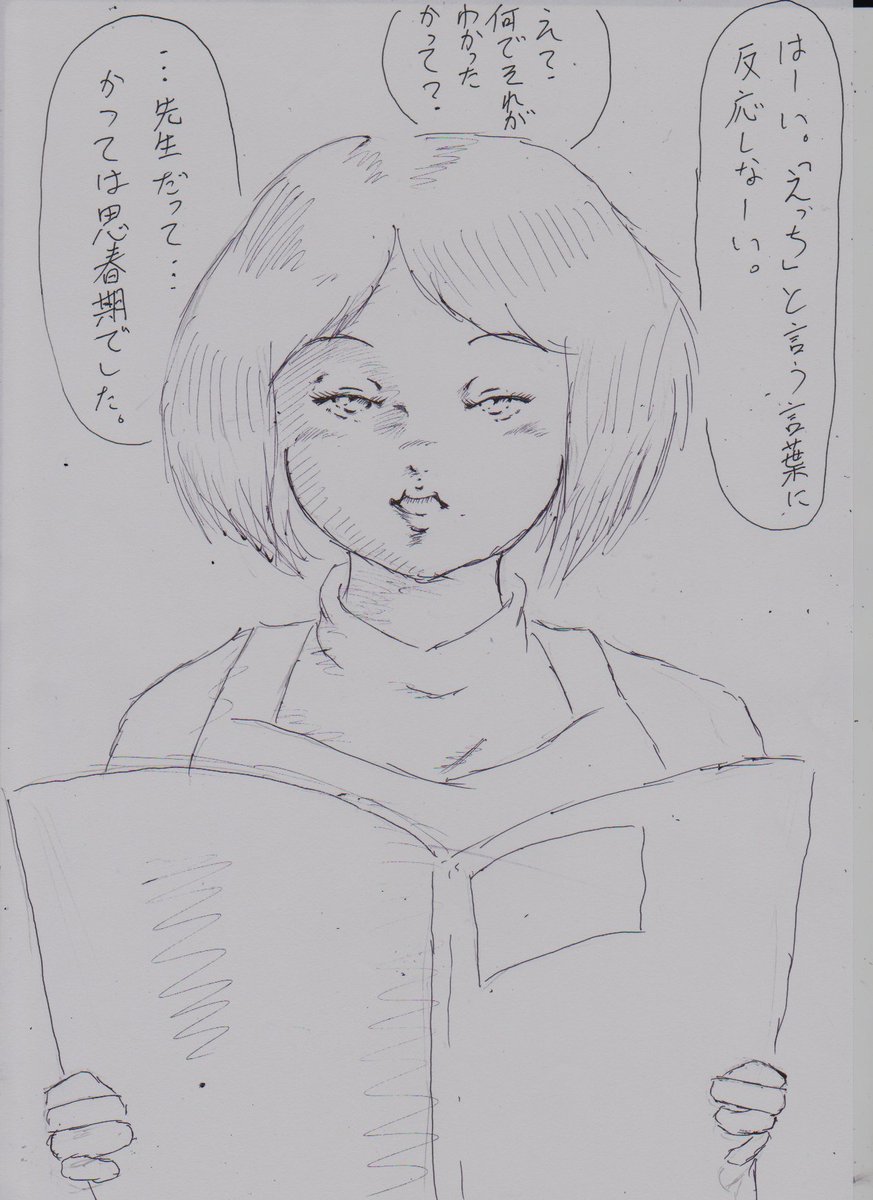 はーい。「えっち」と言う言葉に
反応しなーい。
え?
何でそれが
わかった
かって?
…先生だって…
かつては思春期でした。